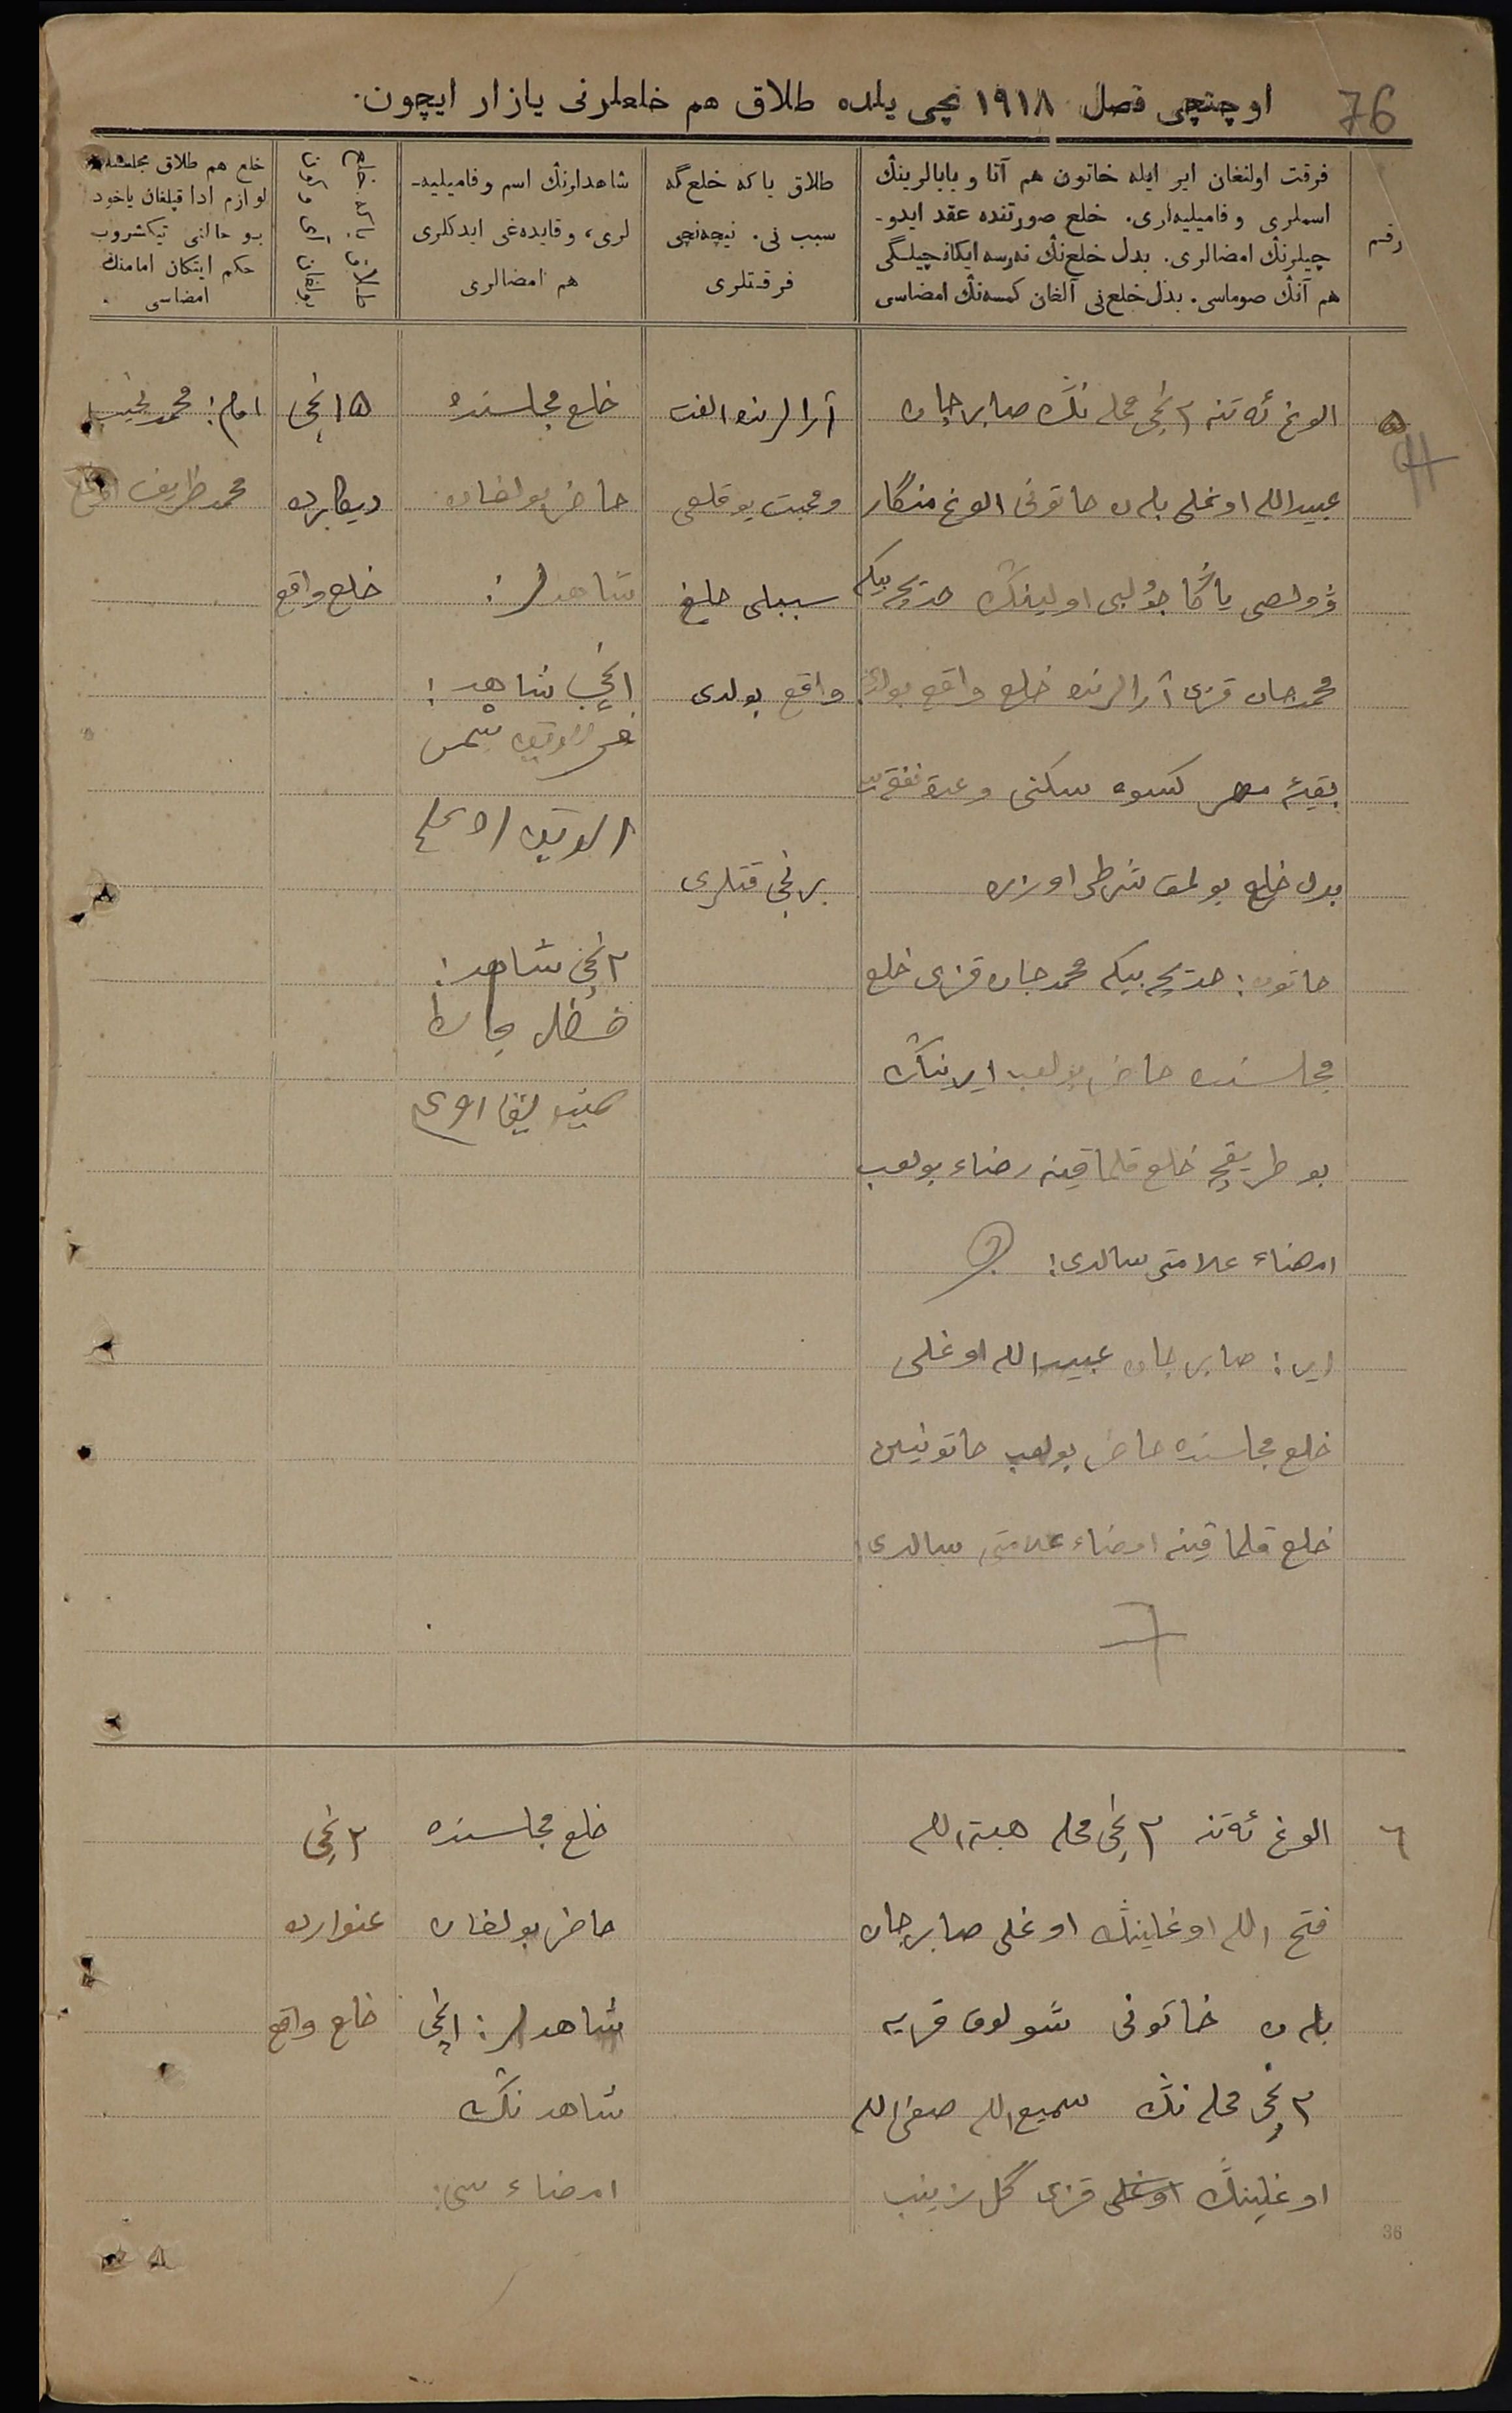 76
اوچنچی فصل ۱۹۱۸ نچی یلده طلاق هم خلعلرنی یازار ایچون.
رقم
فرقت اولنغان ایر ایله خاتون هم آتا و بابالرینڭ
اسملری و فامیلیه‌لری. خلع صورتنده عقد ایدو-
چیلرنڭ امضالری. بدل خلع‌نڭ نه‌رسه ایکانچیلگی
هم آنڭ صوماسی. بدل خلع‌نی آلغان کمسه‌نڭ امضاسی
طلاق یا که خلع‌گه
سبب نی. نیچه‌نچی
فرقتلری
شاهدلرنڭ اسم و فامیلیه-
لری، و قایده‌غی ایدکلری
هم امضالری
طلاق یا که خلع
بولغان آی و کون
خلع هم طلاق مجلسنده
لوازم ادا قیلغان یاخود
بو حالنی تیکشروب
حکم ایتکان امامنڭ
امضاسی
۵
الوغ ئه‌تنه ۲ نچی محله نڭ صابرجان
عبیدالله اوغلی بله‌ن خاتونی الوغ منگار
محمدجان قزی آرالرنده خلع واقع بولدی
بقیهٔ مهر کسوه سکنی وعدة نفقه سی
بدل خلع بولمق شرطی اوزره
خاتون: خدیجه بیکه محمدجان قزی خلع
مجلسنده حاضر بولوب ایرینڭ
بو طریقچه خلع قلماقینه رضاء بولوب
امضاء علامتی سالدی:
ایر: صابرجان عبیدالله اوغلی
خلع مجلسنده حاضر بولوب خاتونیین
خلع قلماقینه امضاء علامتی سالدی:
آرالرنده الفت
ومحبت یوقلغی
سببلی خلع
واقع بولدی
برنچی فرقتلری
خلع مجلسنده
حاضر بولغان
شاهدلر:
۱نچی شاهد:
۲نچی شاهد:
۱۵نچی
دیکابرده
خلع واقع
امام: محمد نجیب
محمد ظریف اوغلی
٦
الوغ ئه‌تنه ۲ نچی محله هبة الله
فتح الله اوغلینڭ اوغلی صابرجان
بله‌ن خاتونی شولوق قریه
۲ نچی محله نڭ سمیع الله صفی الله
اوغلینڭ اوغلی قزی گل زینب
خلع مجلسنده
حاضر بولغان
شاهدلر: ۱نچی
شاهدنڭ
امضاء سی:
۲ نچی
غنوارده
خلع واقع
36